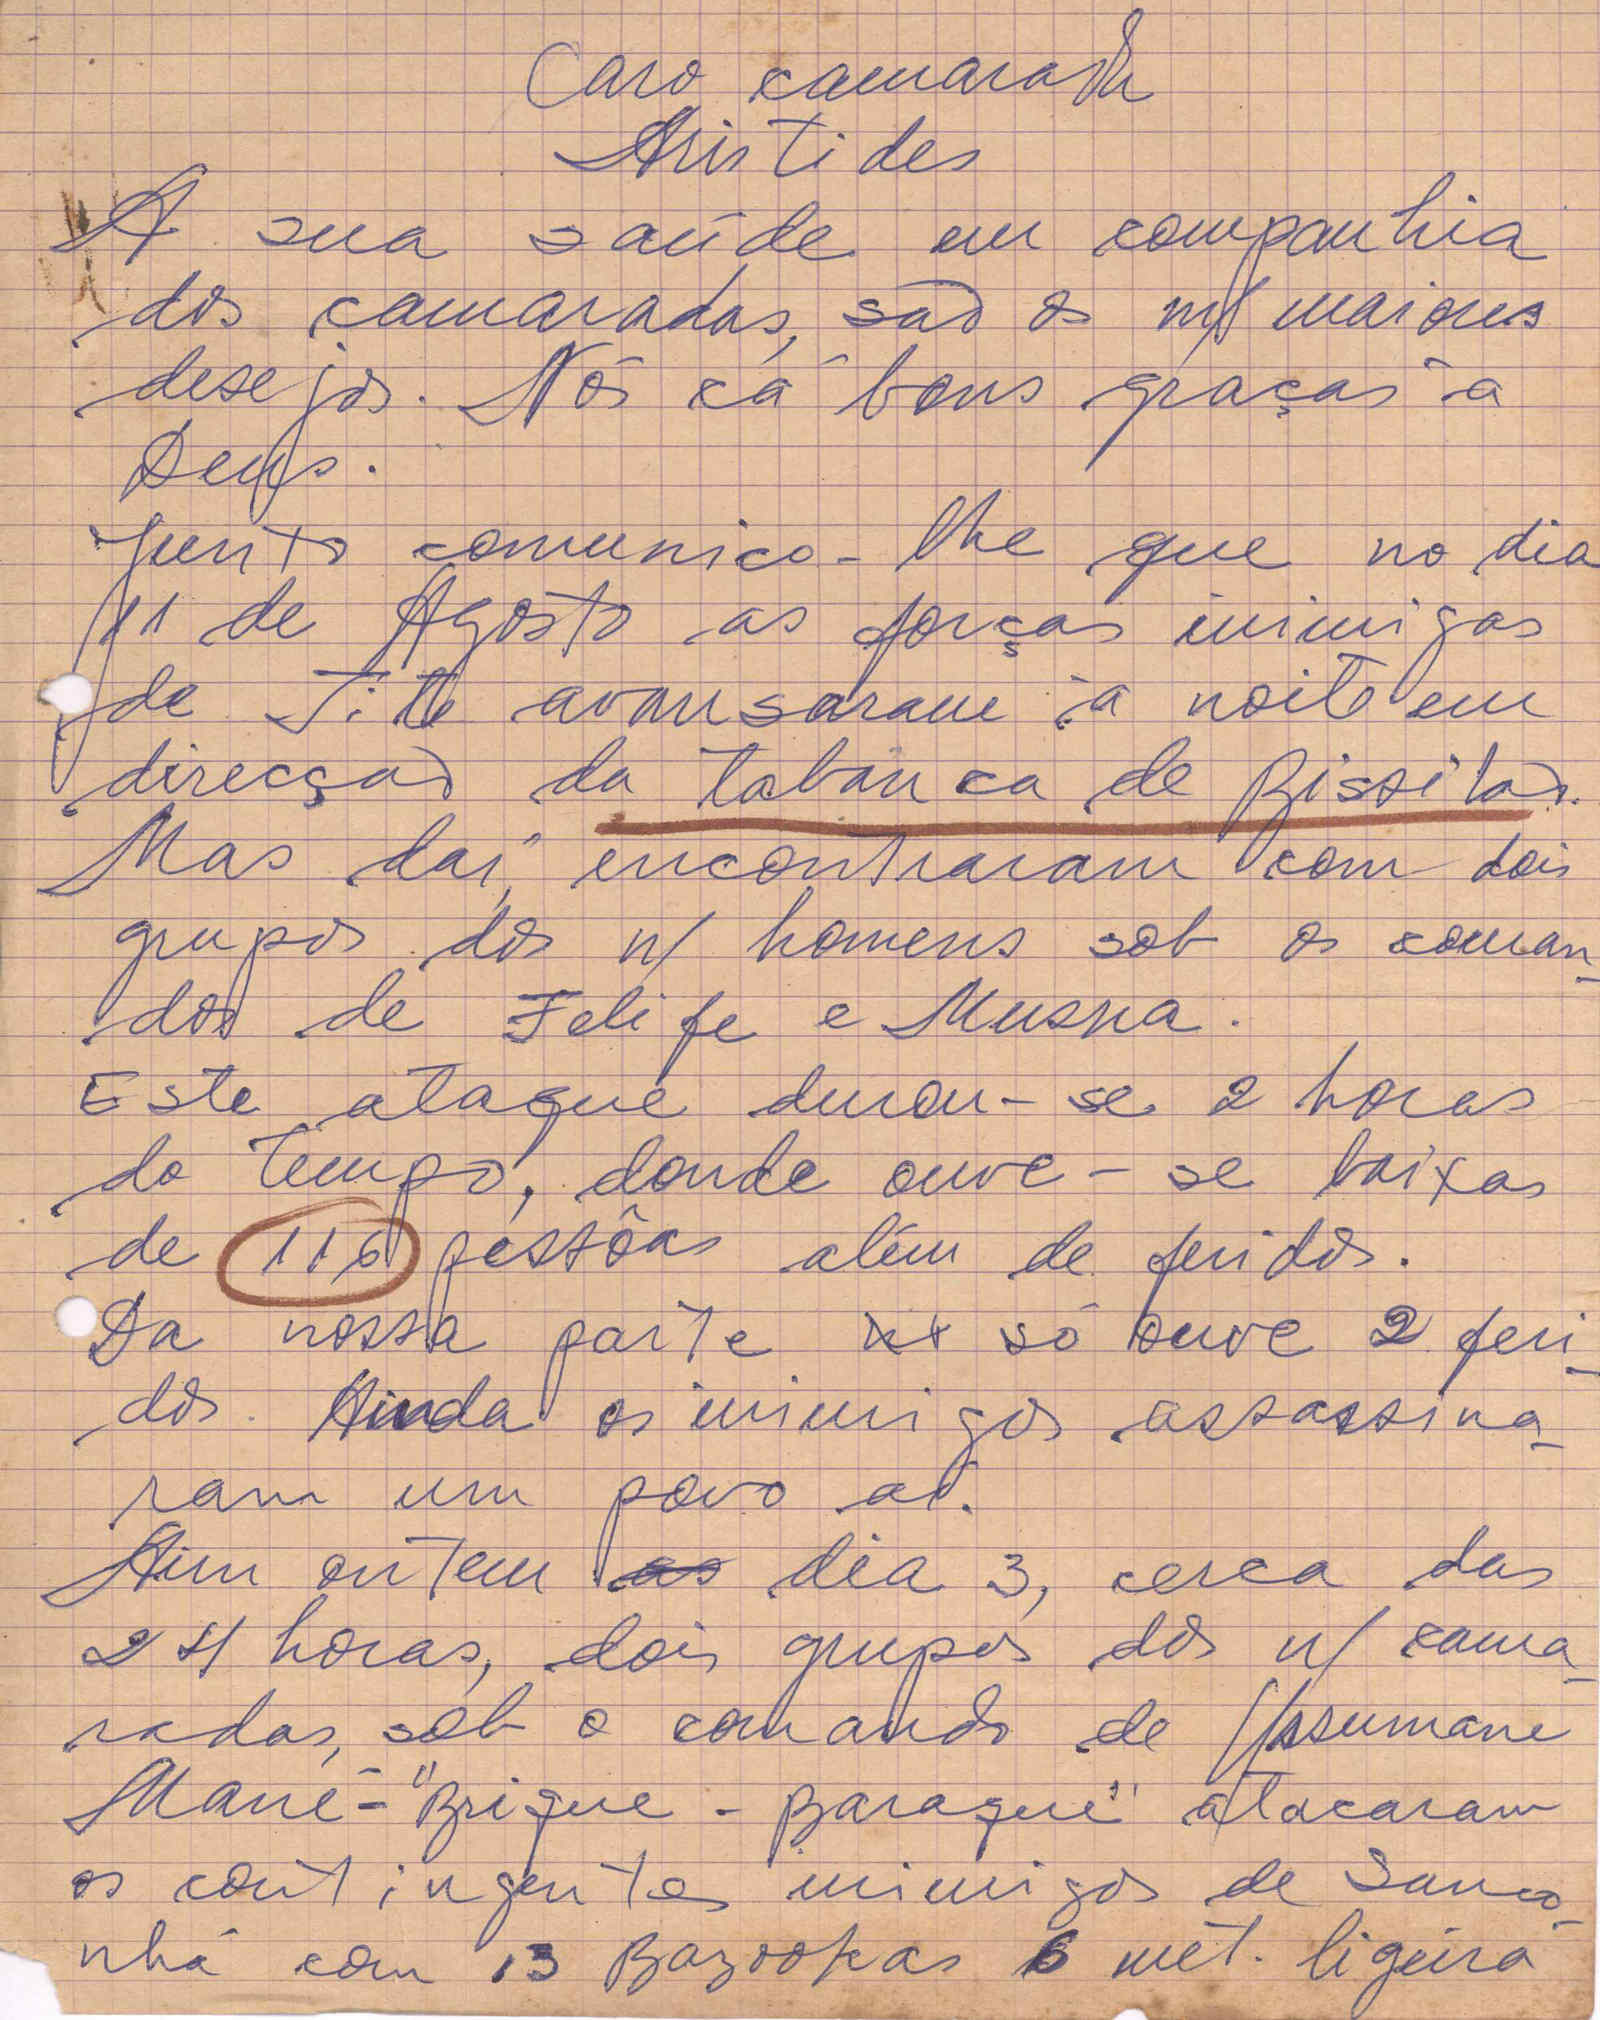 Caro camarada
Aristides
A sua saúde em companhia
dos camaradas, são os n/ maiores
desejos. Nós cá bons graças à
Deus.
Junto comunico-lhe que no dia
11 de Agosto as forças inimigas
de Tite avansaram à noite em
direcção da tabanca de Bissilão.
Mas daí, encontraram com dois
grupos dos n/ homens sob os coman-
dos de Felife e Musna.
Este ataque durou-se 2 horas
do tempo, donde ouve-se baixas
de 116 pessôas além de feridos.
Da nossa parte só ouve 2 feri-
dos. Ainda os inimigos assassina-
ram um povo aí.
Aim ontem as dia 3, cerca das
24 horas, dois grupos dos n/ cama-
radas, sob o comando de Ussumane
Mané - "Brique - Baraque" atacaram
os contingentes inimigos de Sanco-
nhá com 13 Bazookas 6 met. ligeira